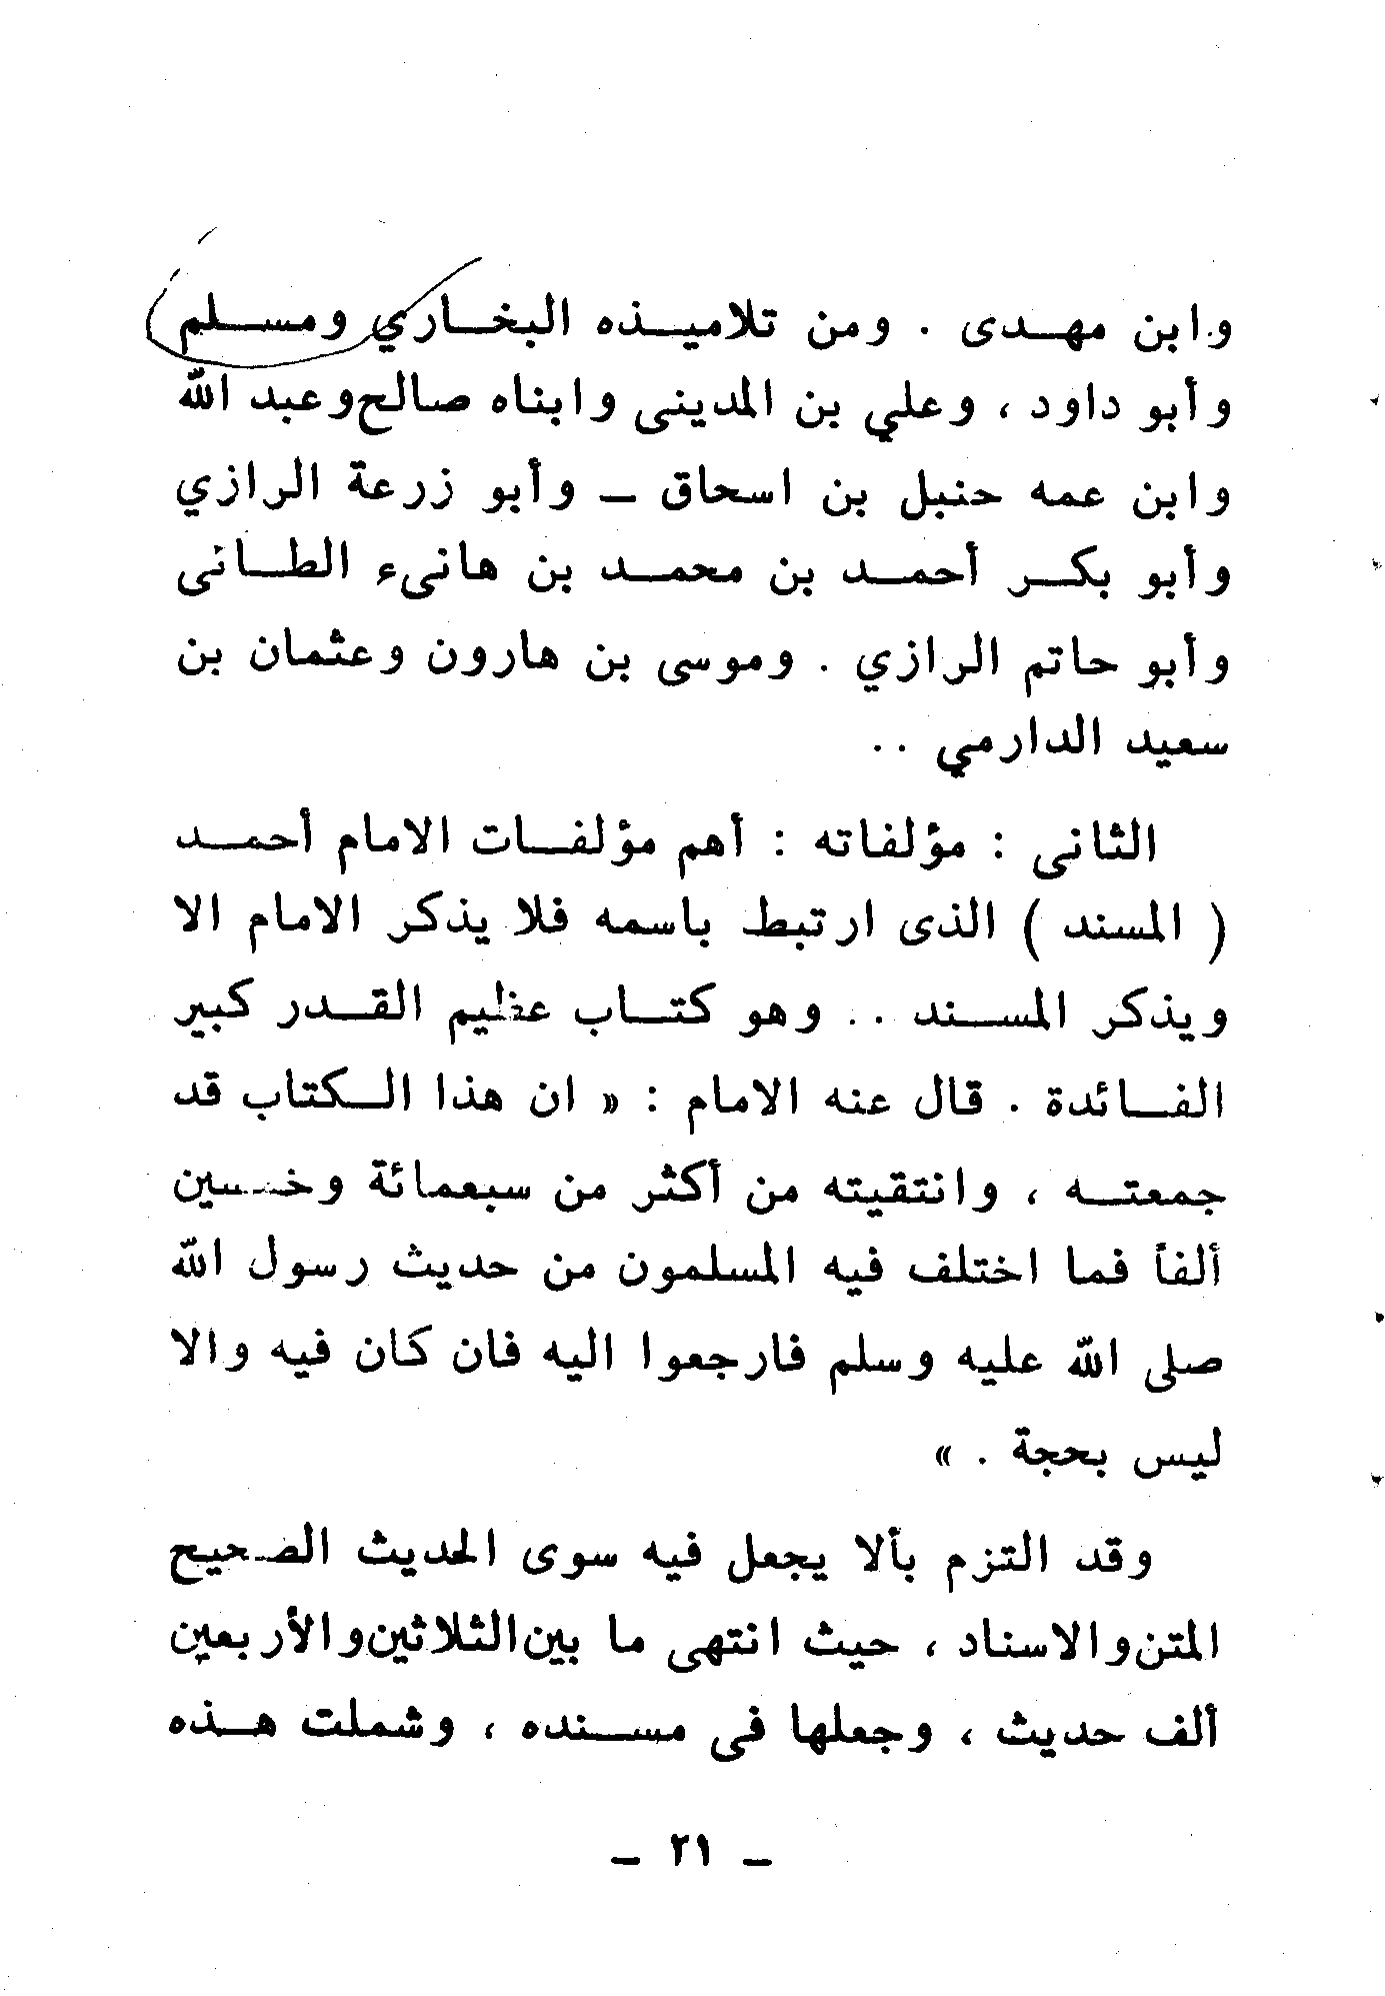 وابن مهدى . ومن تلاميذه البخاري ومسلم
وأبو داود ، وعلي بن المدينى وابناه صالح وعبد الله
وابن عمه حنبل بن اسحاق – وأبو زرعة الرازي
وأبو بكر أحمد بن محمد بن هانىء الطائى
وأبو حاتم الرازي . وموسى بن هارون وعثمان بن
سعيد الدارمي . .
الثانى : مؤلفاته : أهم مؤلفات الامام أحمد
( المسند ) الذى ارتبط باسمه فلا يذكر الامام الا
ويذكر المسند . . وهو كتاب عظيم القدر كبير
الفائدة . قال عنه الامام : « ان هذا الكتاب قد
جمعته ، وانتقيته من أكثر من سبعمائة وخمسين
ألفاً فما اختلف فيه المسلمون من حديث رسول الله
صلى الله عليه وسلم فارجعوا اليه فان كان فيه والا
ليس بحجة . »
وقد التزم بألا يجعل فيه سوى الحديث الصحيح
المتن والاسناد ، حيث انتهى ما بين الثلاثين والأربعين
ألف حديث ، وجعلها فى مسنده ، وشملت هذه
– ٢١ –